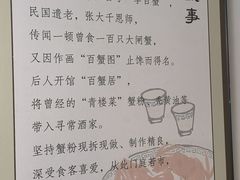 事
李百蟹”，
民国遗老，张大千恩师，
传闻一顿曾食一百只大闸蟹，
又因作画“百蟹图”止馋而得名。
后人开馆“百蟹居”，
将曾经的“青楼菜”蟹粉、秃黄油菜
带入寻常酒家。
坚持蟹粉现拆现做、制作精良，
深受食客喜爱，从此门庭若市，